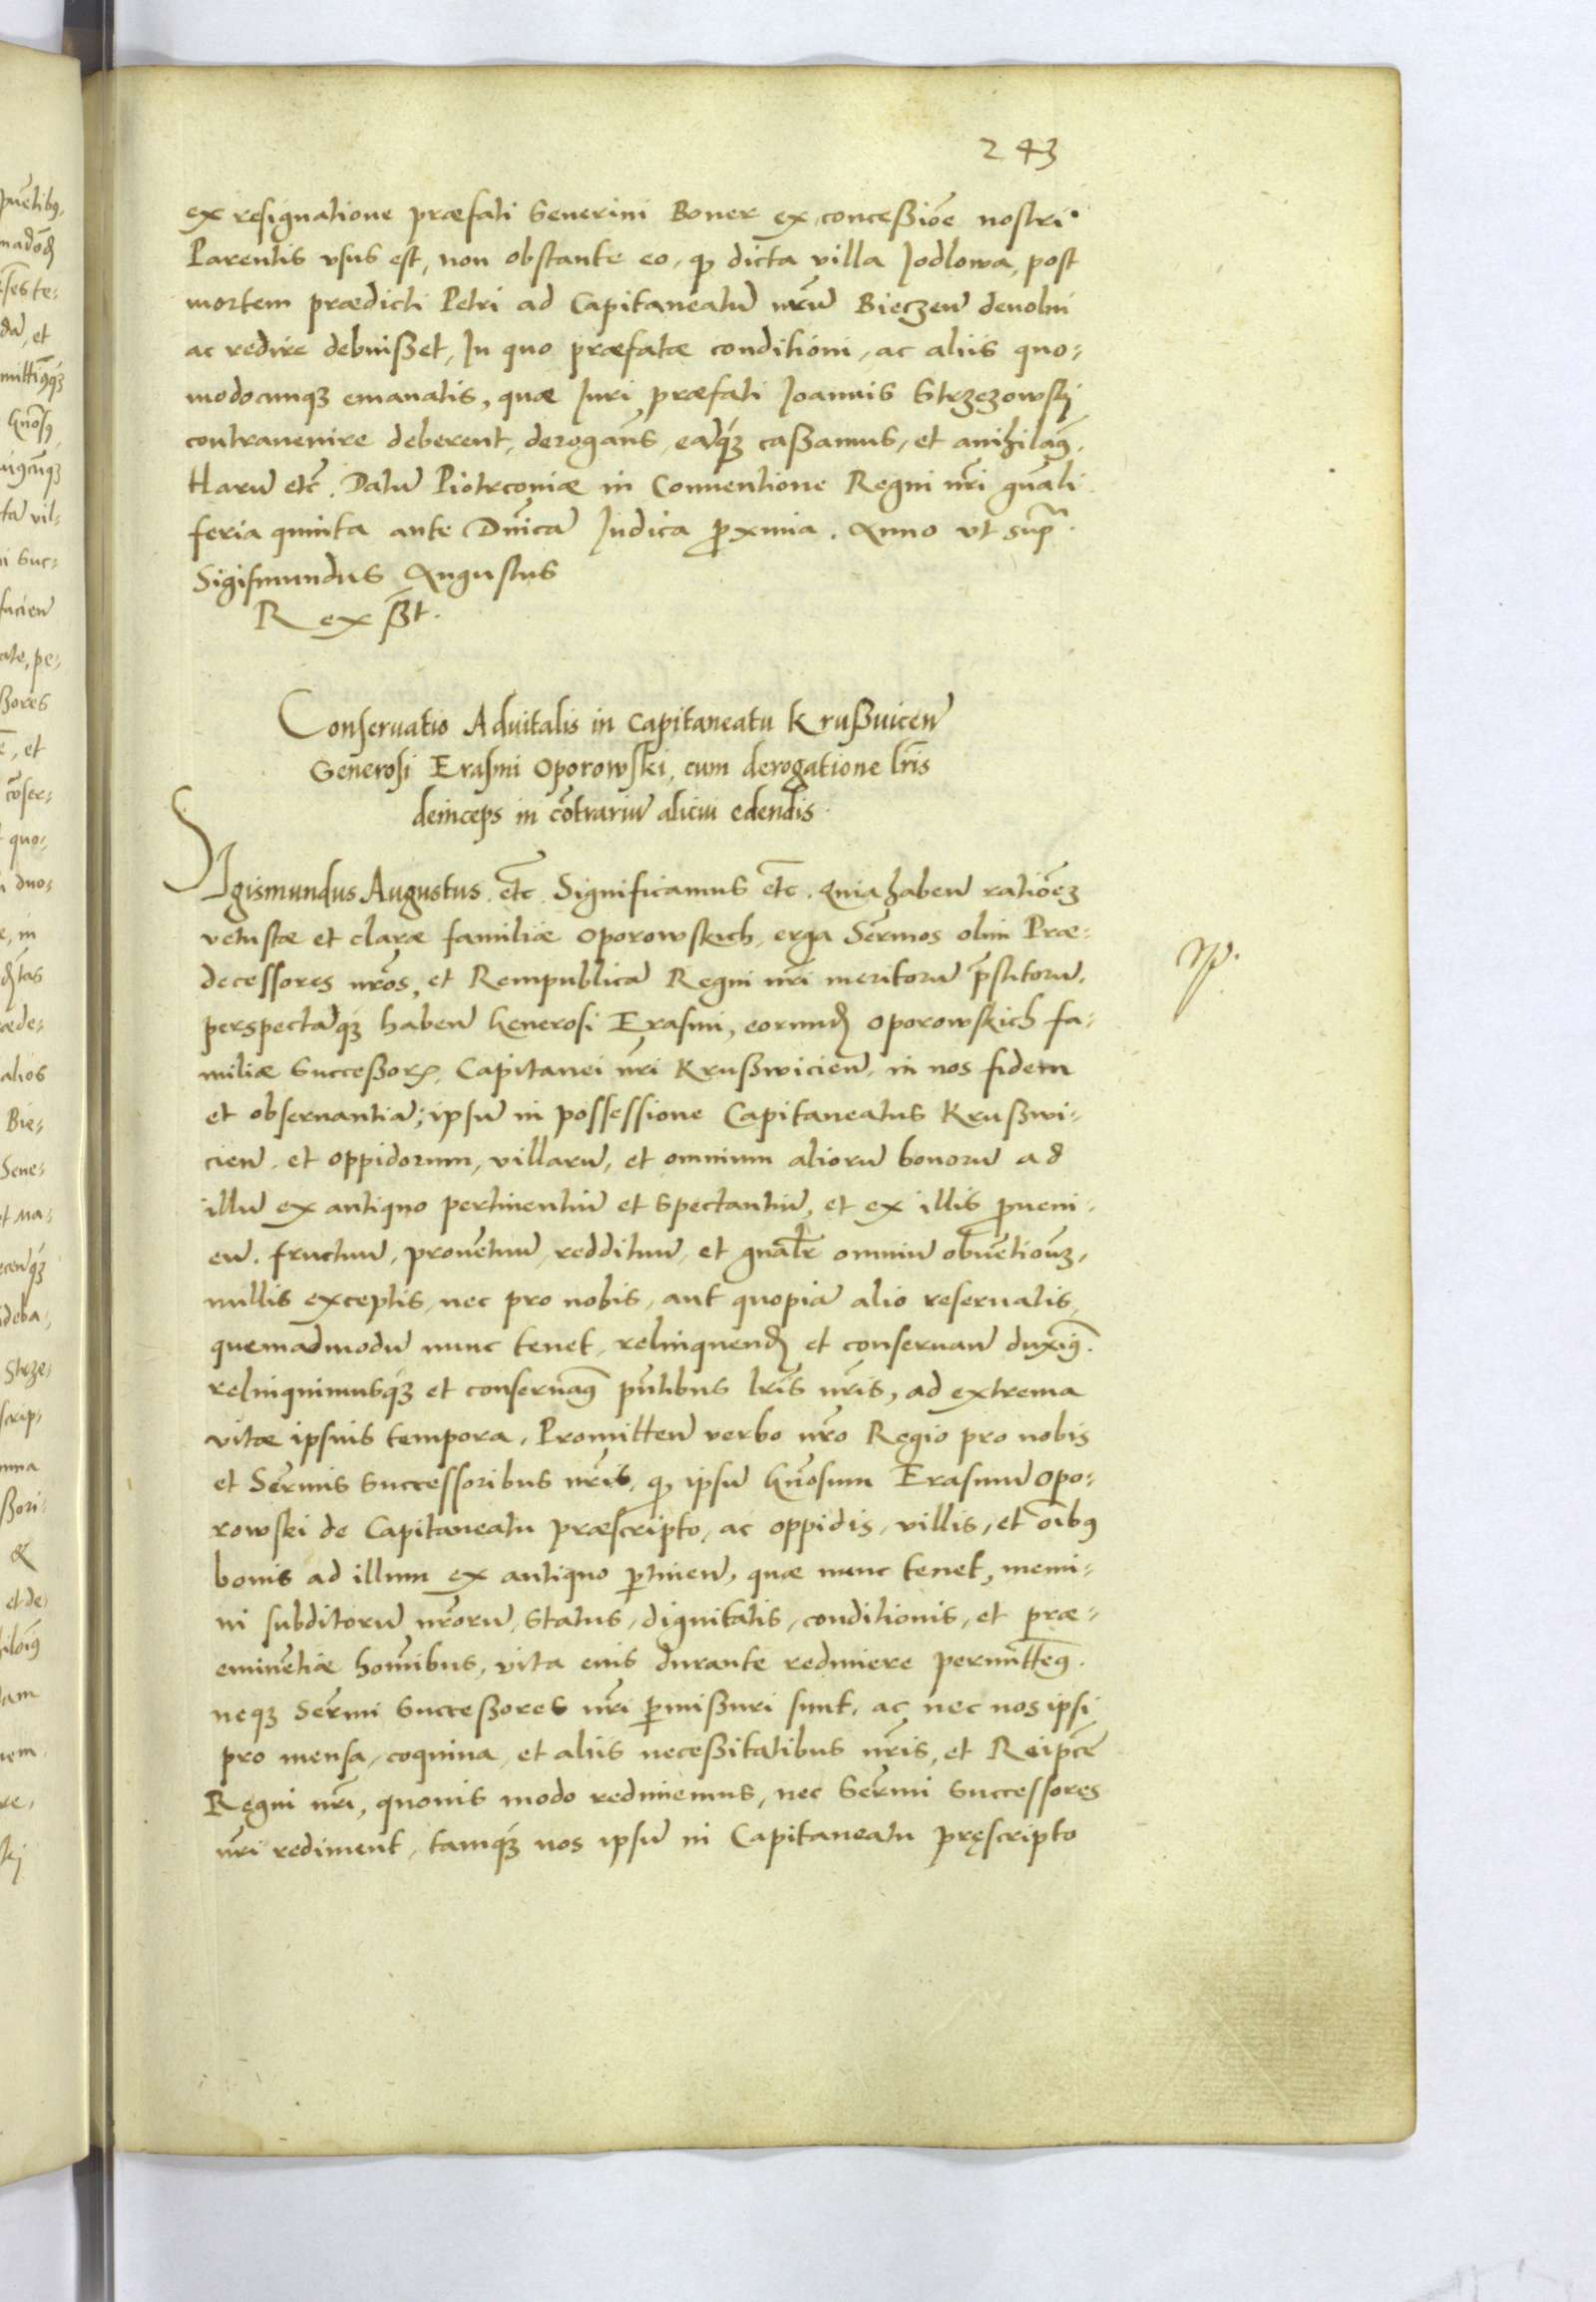 243
ex resignatione præfati Seuerini Boner ex concessiõe nostri
Parentis vsus est, non obstante eo, ꝙ dicta villa Jodlowa, post
mortem prædicti Petri ad Capitaneatũ nrũ Bieczeñ deuolui
ac redire debuißet, In quo præfatæ conditioni, ac aliis quo-
modocunqꝫ emanatis, quæ Iuri præfati Joannis Strzezowskj
contrauenire deberent, derogam̃s, eaq́ꝫ caßamus, et anihilam̃ꝰ.
Harũ etc̃. Datũ Piotrcouiæ in Conuentione Regni nr̃i gñali
feria quinta ante Dñicã Iudica ꝓxima. Anno vt supra.
Sigismundus Augustus
Rex ßt.
Conseruatio Aduitalis in Capitaneatu Krußuiceñ
Generosi Erasmi Oporowski, cum derogatione lr̃is
deinceps in cõtrariũ alicui edendis.
Sigismundus Augustus. etc̃. Significamus etc̃. Quia habeñ ratiõeꝫ
vetustæ et claræ familiæ Oporowskich, erga Ser̃mos olim Præ-
decessores nr̃os, et Rempublicã Regni nr̃i meritorũ p̃stitorũ,
perspectãq́ꝫ habeñ Generosi Erasmi, eorundꝫ Oporowskich fa-
miliæ Succeßorꝭ, Capitanei nr̃i Krußwicieñ, in nos fidem
et obseruantiã; ipsũ in possessione Capitaneatus Krußwi-
cieñ, et oppidorum, villarũ, et omnium aliorũ bonorũ ad
illũ ex antiquo pertinentiũ et spectantiũ, et ex illis ꝓueni-
eñ. fructuũ, prouẽtuũ, reddituũ, et gñalr̃ omniũ obuẽtionũ,
nullis exceptis, nec pro nobis, aut quopiã alio reseruatis,
quemadmodũ nunc tenet, relinquendꝫ et conseruañ duxim̃ꝰ.
relinquimusq́ꝫ et conseruam̃ꝰ pñtibus lr̃is nr̃is, ad extrema
vitæ ipsius tempora, Promitteñ verbo nr̃o Regio pro nobis
et Ser̃mis Successoribus nr̃is, ꝙ ipsũ Gñosum Erasmũ Opo-
rowski de Capitaneatu præscripto, ac oppidis, villis, et oĩbꝰ
bonis ad illum ex antiquo ꝑtineñ, quæ nunc tenet, nemi-
ni subditorũ nr̃orũ, status, dignitatis, conditionis, et præ-
eminẽtiæ homĩbus, vita eius durante redimere permittem̃ꝰ.
neqꝫ Ser̃mi Succeßores nr̃i ꝑmißuri sunt, ac nec nos ipsi
pro mensa, coquina, et aliis neceßitatibus nr̃is, et Reipcæ̃
Regni nr̃i, quouis modo redimemus, nec Ser̃mi Successores
nr̃i rediment, tamq́ꝫ nos ipsũ in Capitaneatu pręscripto